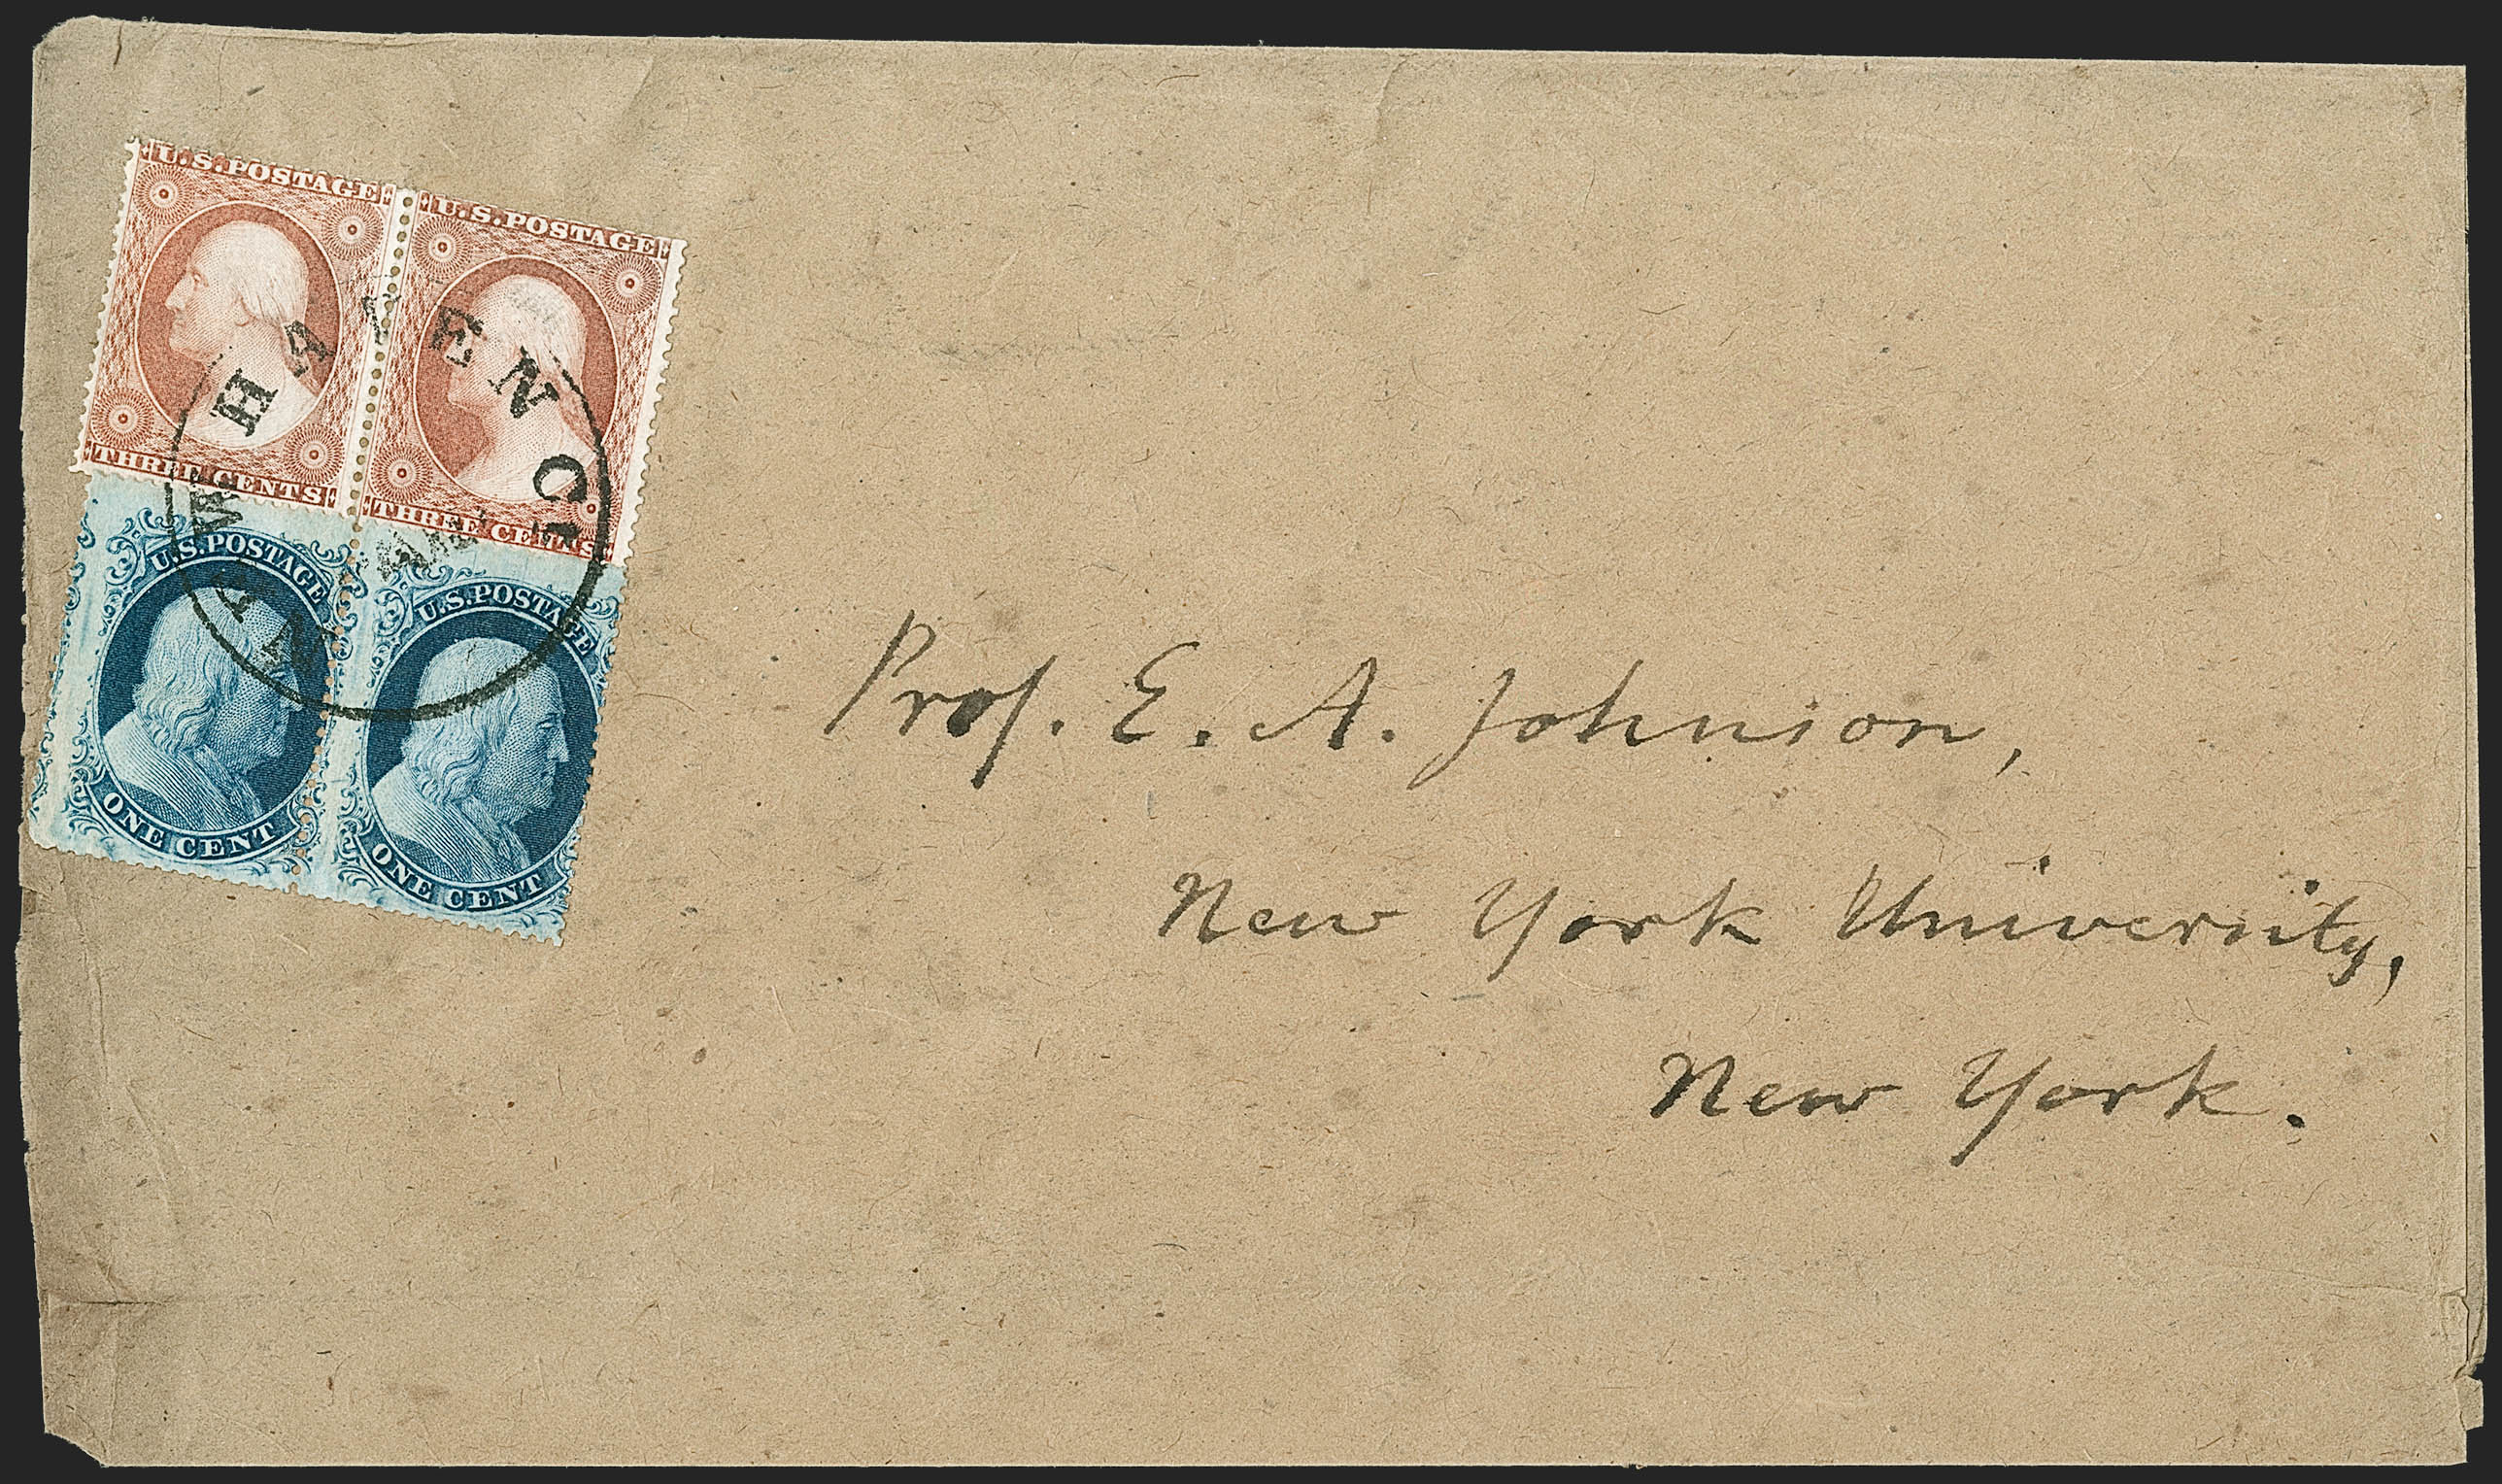 U.S. POSTAGE
U.S. POSTAGE
THREE CENTS
THREE CENTS
NEW HAVEN CT
U.S. POSTAGE
U.S. POSTAGE
ONE CENT
ONE CENT
Prof. E. A. Johnson,
New York University,
New York.